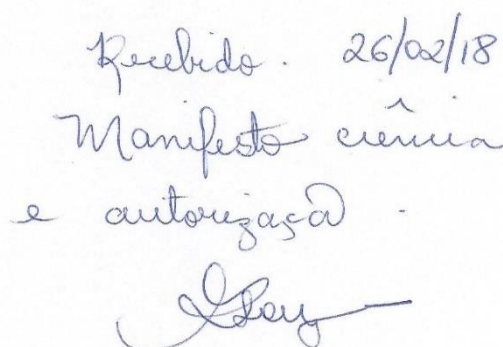 Recebido. 26/02/18
Manifesto ciência
e autorização.